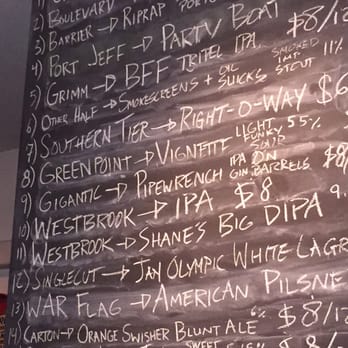 2) BOULEVARD
3) BARRIER → RIPRAP PORTER
4) PORT JEFF → PARTY BOAT $8/12
5) GRIMM → BFF TRIPEL IPA
6) OTHER HALF → SMOKESCREENS + OIL SLICKS SMOKED IMP. STOUT 11%
7) SOUTHERN TIER → RIGHT-O-WAY $6
8) GREENPOINT → VIGNETTE LIGHT FUNKY SOUR 5.5%
9) GIGANTIC → PIPEWRENCH IPA IN GIN BARRELS $8
10) WESTBROOK → IPA $8
11) WESTBROOK → SHANE'S BIG DIPA 9.
12) SINGLECUT → JAN OLYMPIC WHITE LAGR
13) WAR FLAG → AMERICAN PILSNE
14) CARTON → ORANGE SWISHER BLUNT ALE 6% $8/12
SWEET